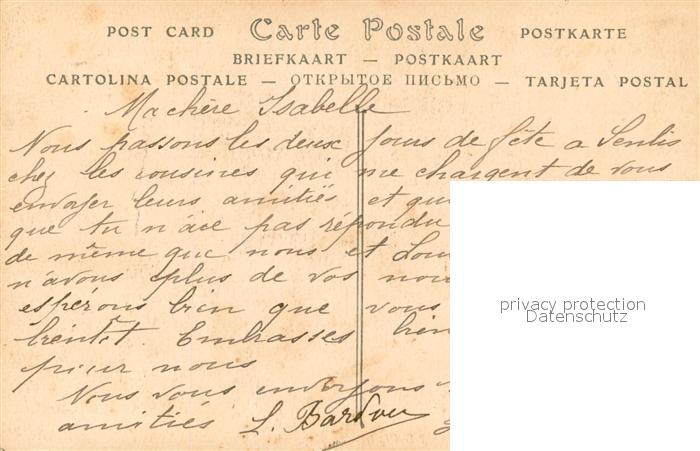 POST CARD Carte Postale POSTKARTE
BRIEFKAART — POSTKAART
CARTOLINA POSTALE — ОТКРЫТОЕ ПИСЬМО — TARJETA POSTAL
Ma chère Isabelle
Nous passons les deux jours de fête a Senlis
chez les cousines qui me chargent de vous
envoyer leurs amitiés et
que tu n'aie pas répondu
de même que nous et
n'avons plus de vos
esperons bien que vous
bientôt. Embrasses bien
pour nous
Nous vous envoyons
amitiés L. Bardou
privacy protection
Datenschutz